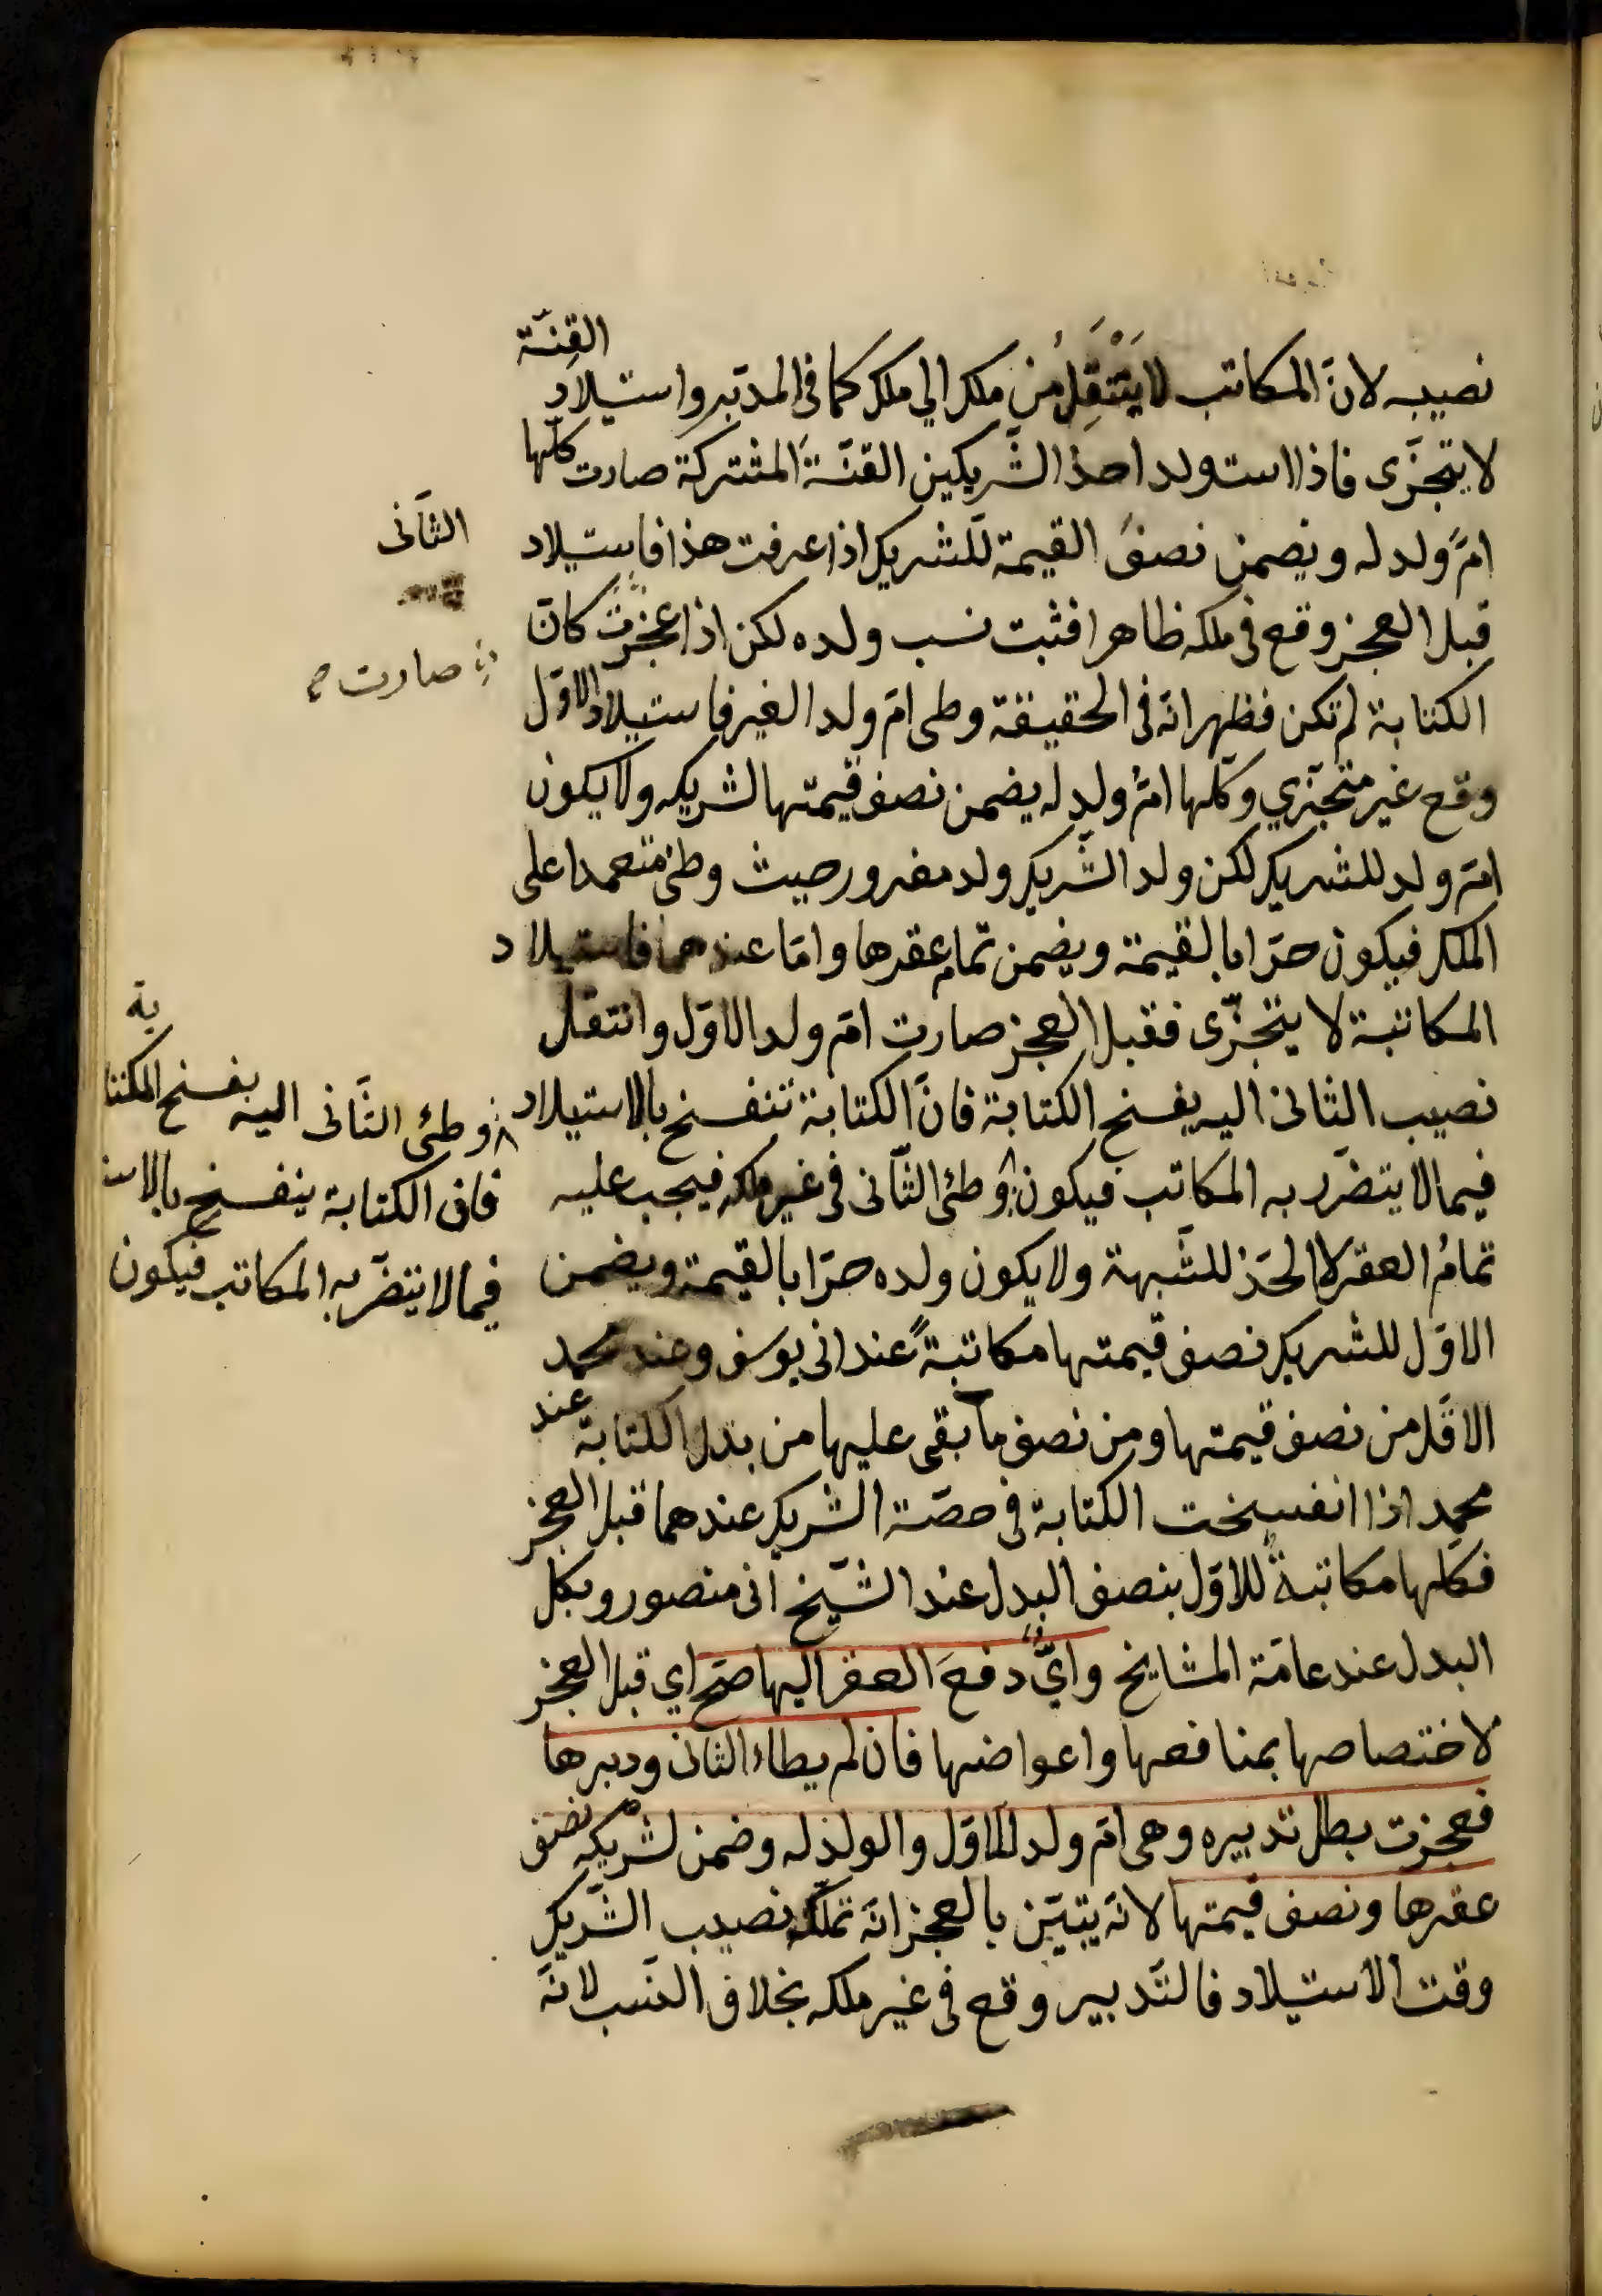 نصيبه لانّ المكاتب لا يَنْتَقِلُ من ملك الي ملك كما في المدبّر واستيلاد القِنّة
لا يتجزّى فاذا استولد احد الشّريكين القنّة المشتركة صارت كلّها
امّ ولد له ويضمن نصف القيمة للشريك اذا عرفت هذا فاستيلاد الثّانى
قبل العجز وقع فى ملكه ظاهرا فثبت نسب ولده لكن اذا عجزت كانّ
صارت
الكتابة لم تكن فظهر انه فى الحقيقة وطى امّ ولد الغير فاستيلاد الاوّل
وقع غير متجزّي وكلّها امّ ولد له يضمن نصف قيمتها لشريكه ولا يكون
امّ ولد للشريك لكن ولد الشّريك ولد مغرور حيث وطئ متعمدا على
الملك فيكون حرّا بالقيمة ويضمن تمام عقرها وامّا عندهما فاستيلاد
المكاتبة لا يتجزّى فقبل العجز صارت امّ ولد الاوّل وانتقل
نصيب الثانى اليه بفسخ الكتابة فانّ الكتابة تنفسخ بالاستيلاد
فيما لا يتضرّر به المكاتب فيكون وطئ الثّانى فى غير ملكه فيجب عليه
وطئ الثّانى اليه بفسخ المكتابة
فان الكتابة ينفسخ بالاست
فيما لا يتضرّ به المكاتب فيكون
تمامُ العقر لا الحدّ للشّبهة ولا يكون ولده حرّا بالقيمة ويضمن
الاوّل للشريك نصف قيمتها مكاتبةً عند ابى يوسف وعند محمد
الاقل من نصف قيمتها ومن نصف ما بقى عليها من بدل الكتابة عند
محمد اذا انفسخت الكتابة فى حصّة الشريك عندهما قبل العجز
فكلّها مكاتبة للاوّل بنصف البدل عند الشّيخ ابى منصور وبكل
البدل عند عامّة المشايخ وايٌّ دفعَ العقر اليها صحّ اي قبل العجز
لاختصاصها بمنافعها واعواضها فان لم يطاء الثانى ودبرها
فعجزت بطل تدبيره وهى امّ ولد للاوّل والولد له وضمن لشريكه نصف
عقرها ونصف قيمتها لانّه يتبيّن بالعجز انّه تملّك نصيب الشّريك
وقت الاستيلاد فالتّدبير وقع فى غير ملكه بخلاف النّسب لانّه